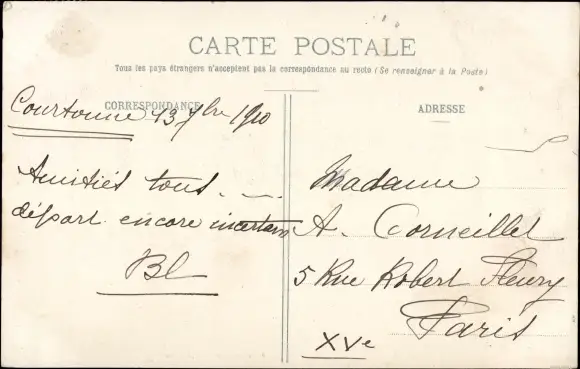 CARTE POSTALE
Tous les pays étrangers n'acceptent pas la correspondance au recto (Se renseigner à la Poste)
CORRESPONDANCE
Courtonne 13 7bre 1910
Amitiés tous. —
départ encore incertain
BL
ADRESSE
Madame
A. Corneillet
5 Rue Robert Fleury
Paris
XVe